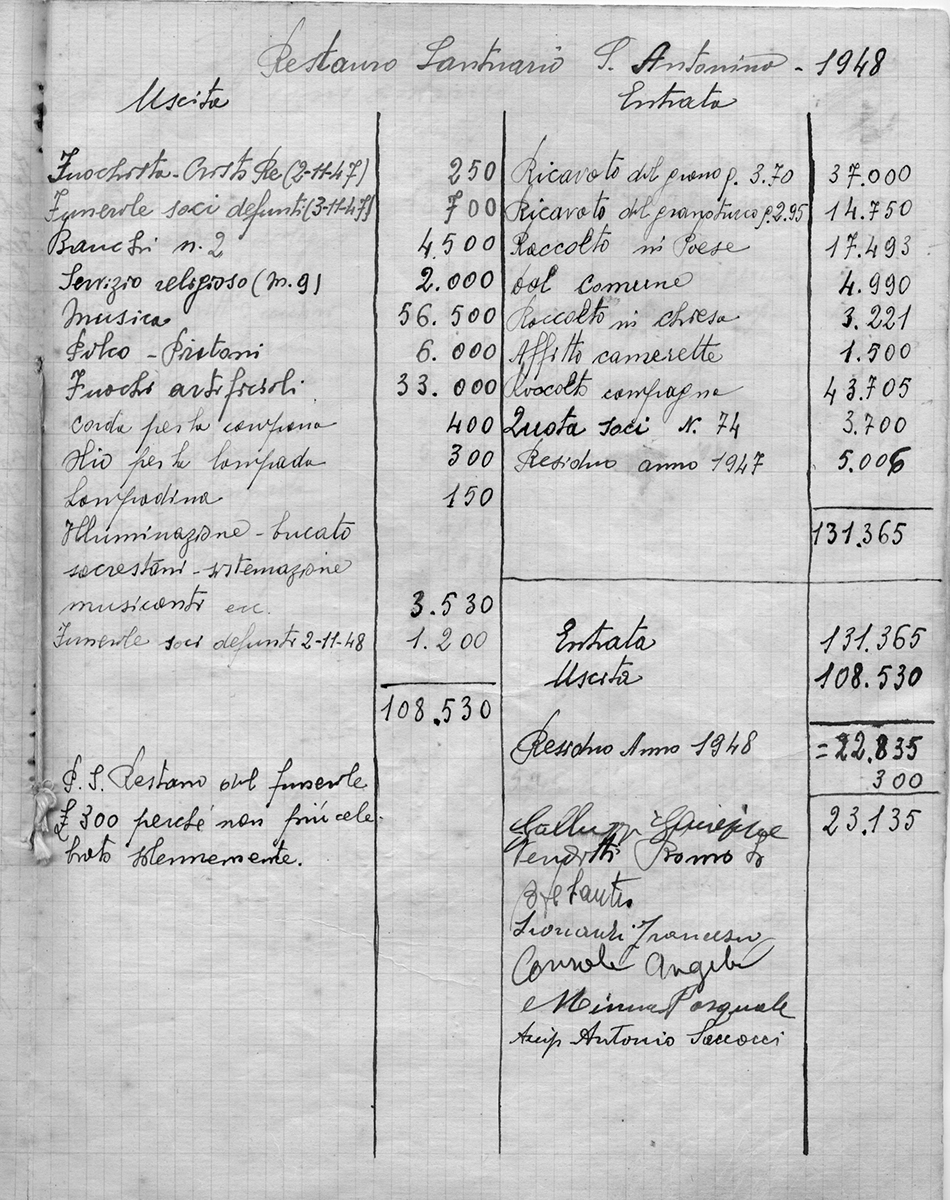 Restauro Santuario S. Antonino - 1948
Uscita
Fuochista - Cristo Re (2-11-47) 250
Funerale soci defunti (3-11-47) 700
Banchi n. 2 4.500
Servizio religioso (m. 9) 2.000
Musica 56.500
Palco - Pistoni 6.000
Fuochi artificiali 33.000
corda per la campana 400
Olio per la lampada 300
Lampadina 150
Illuminazione - bucato
sacrestani - sistemazione
musicanti ecc. 3.530
Funerale soci defunti 2-11-48 1.200
108.530
P. S. Restano del funerale
£ 300 perché non fu cele-
brato solennemente.
Entrata
Ricavato del grano q. 3.70 37.000
Ricavato del granoturco q. 2.95 14.750
Raccolto in Paese 17.493
dal comune 4.990
Raccolto in chiesa 3.221
Affitto camerette 1.500
Raccolto campagna 43.705
Quota soci N. 74 3.700
Residuo anno 1947 5.006
131.365
Entrata 131.365
Uscita 108.530
Residuo Anno 1948 = 22.835
300
23.135
Giuseppe
Romolo
Francesco
Console Angelo
Pasquale
Antonio Saccocci